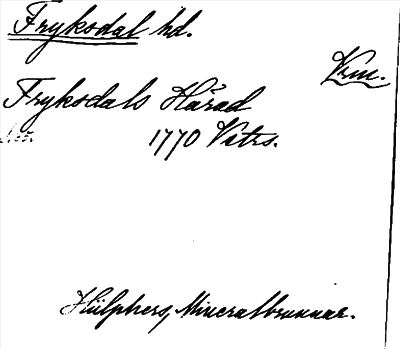 Fryksdal hd.
Vrm.
Fryksdals Härad
1770 Vetrs.
Hülphers, Mineralbrunnar.